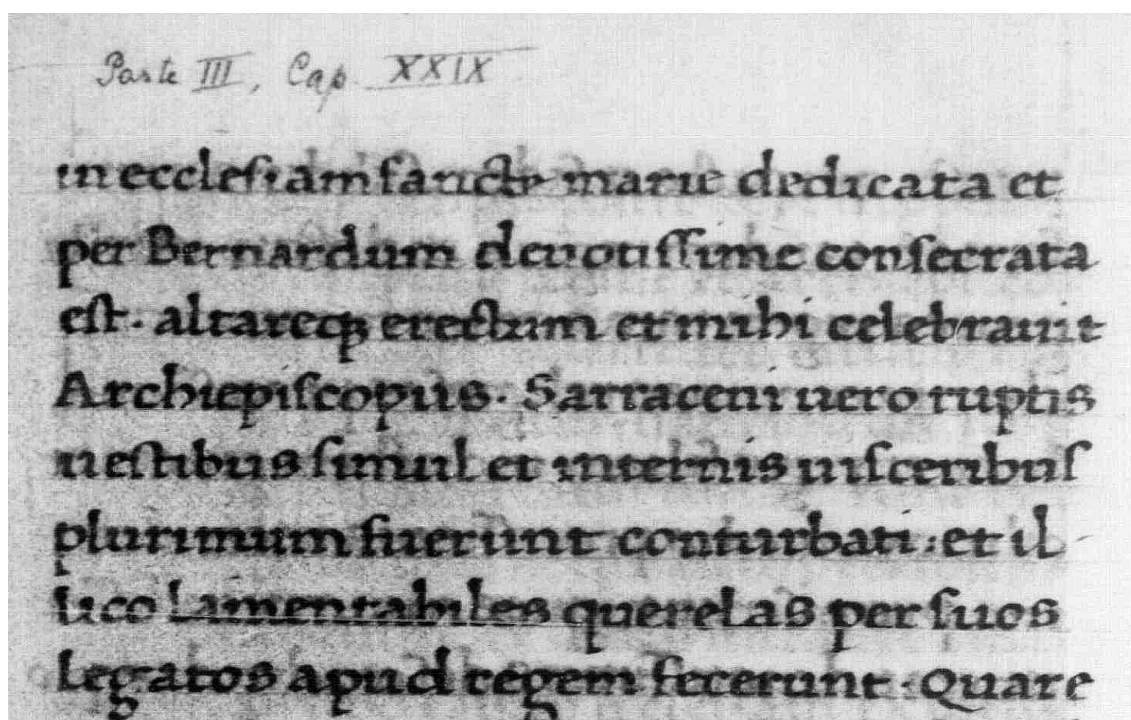 Parte III, Cap. XXIX
in ecclesiam sancte marie dedicata et
per Bernardum deuotissime consecrata
est · altareqꝫ erectum et mihi celebrauit
Archiepiscopus · Sarraceni uero ruptis
uestibus simul et internis uisceribus
plurimum fuerunt conturbati · et il-
lico lamentabiles querelas per suos
legatos apud regem fecerunt · Quare